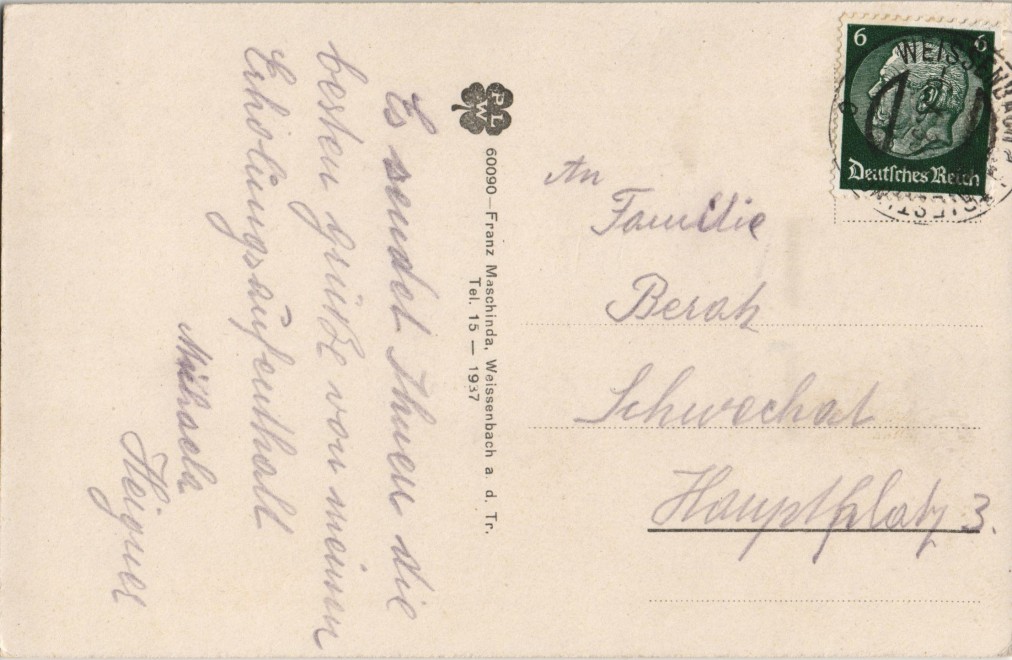 Es sendet Ihnen die
besten grüße von meinen
Erholungsaufenthalt
Heigner
PLW
60090 — Franz Maschinda, Weissenbach a. d. Tr.
Tel. 15 — 1937
6 6
Deutsches Reich
WEISSENBACH a. d.
An
Familie
Berah
Schwechat
Hauptplatz 3.